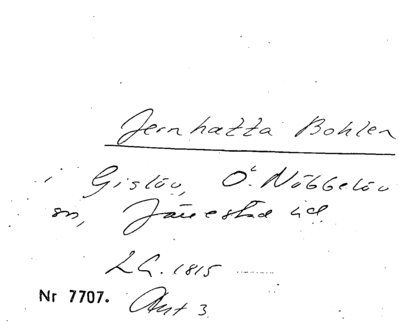 Jernhatta Bohlen
i Gislöv, Ö. Nöbbelöv
sn, Järrestad hd
L.G. 1815
Nr 7707. Ant 3